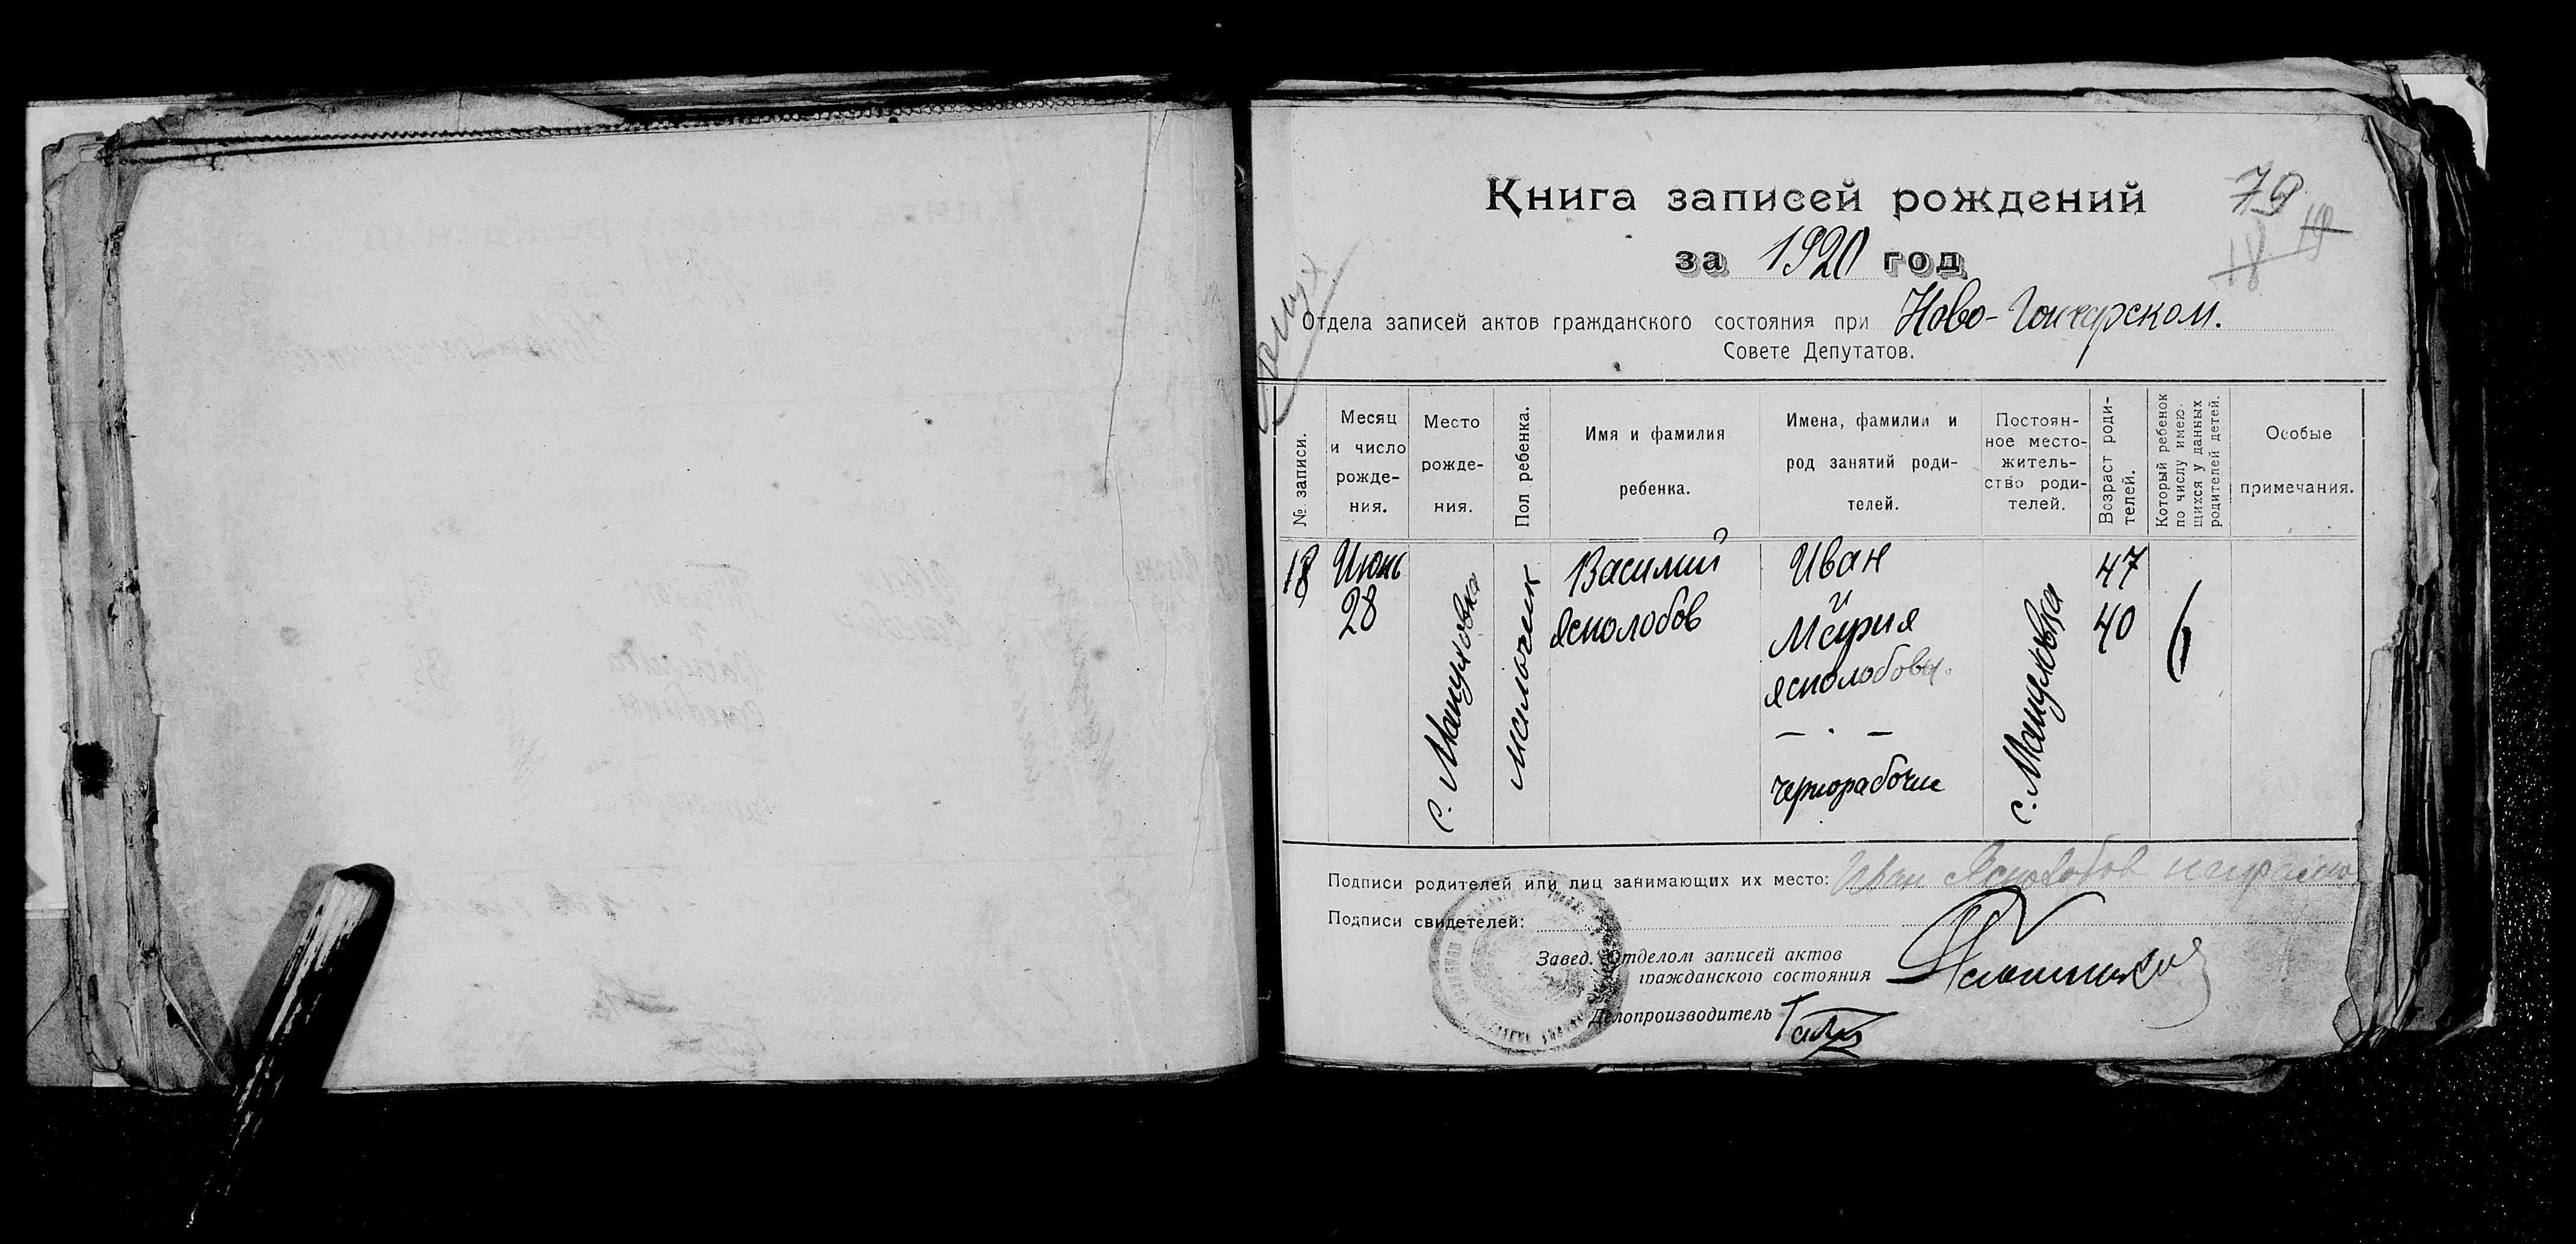 Книга записей рождений
79
18 19
за 1920 год
Отдела записей актов гражданского состояния при Ново-Гончарском.
Совете Депутатов.
№ записи.
Месяц
и число
рожде-
ния.
Место
рожде-
ния.
Пол ребенка.
Имя и фамилия
ребенка.
Имена, фамилии и
род занятий роди-
телей.
Постоян-
ное место-
житель-
ство роди-
телей.
Возраст роди-
телей.
Который ребенок
по числу имею-
щихся у данных
родителей детей.
Особые
примечания.
18
Июнь
28
с. Мануховка
мальчик
Василий
Ясполобов
Иван
и
Мария
Ясполобовы.
— . —
чернорабочие
с. Мануховка
47
40
6
Подписи родителей или лиц занимающих их место: Иван Ясполобов
Подписи свидетелей:
Завед. Отделом записей актов
гражданского состояния
Делопроизводитель